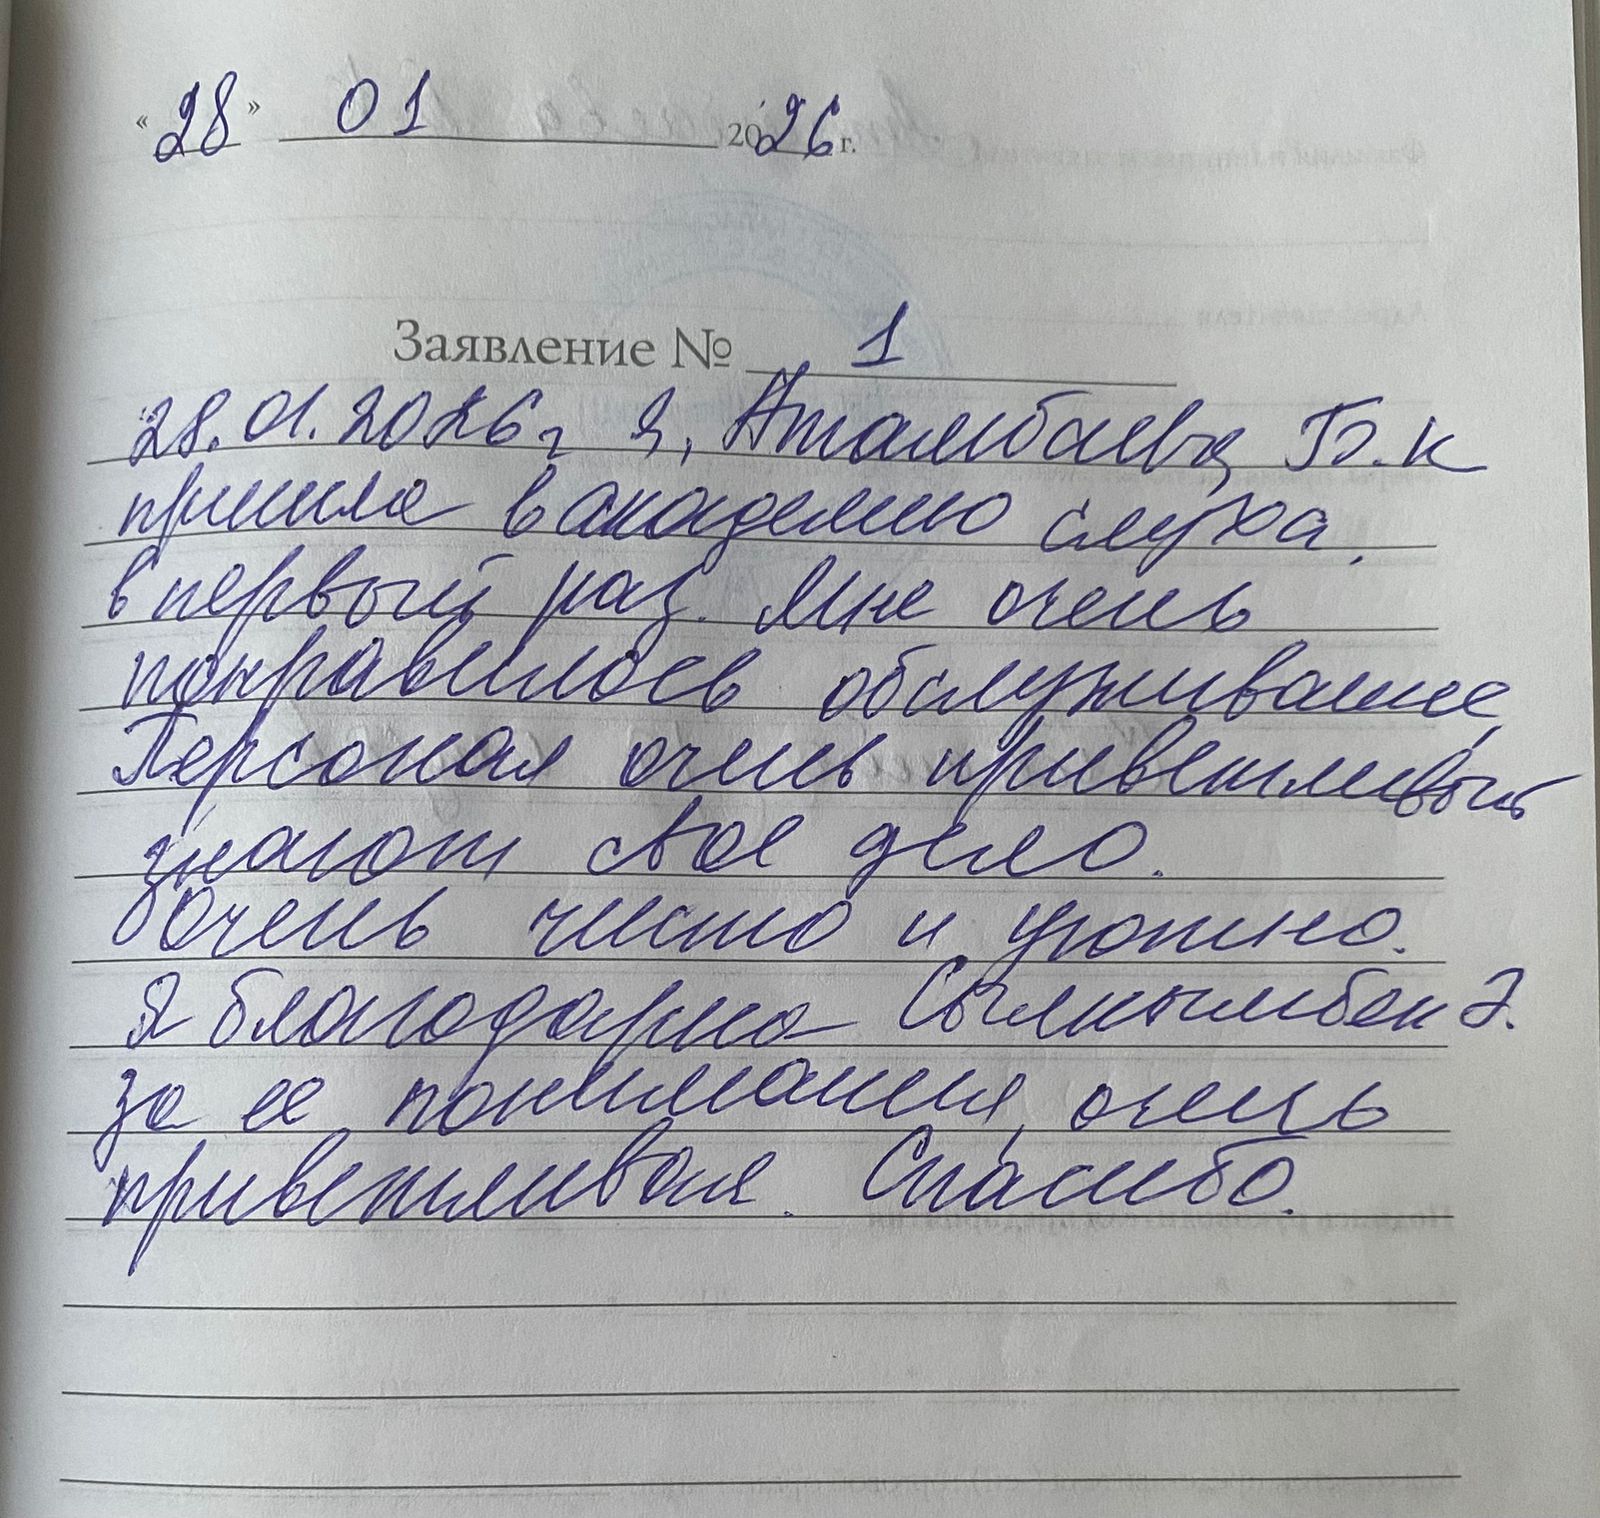 «28» 01 2026 г.
Заявление № 1
28.01.2026 г Я, Атамбаева Б.К
пришла в академию слуха.
в первый раз. Мне очень
понравилось обслуживание,
Персонал очень приветливый
знают свое дело.
Очень чисто и уютно.
Я благодарна Сыымбек Э.
за ее понимания, очень
приветливая. Спасибо.